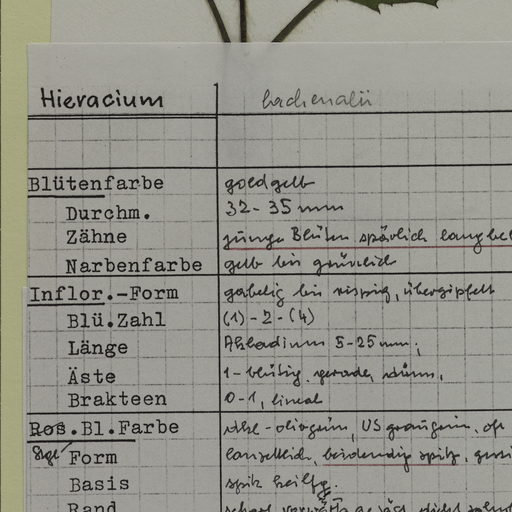 Hieracium lachenalii
Blütenfarbe goldgelb
Durchm. 32-35 mm
Zähne junge Blüten spärlich lang be
Narbenfarbe gelb bis grünlich
Inflor.-Form gabelig bis rispig, übergipfelt
Blü.Zahl (1)-2-(4)
Länge Akladium 5-25 mm,
Äste 1-blütig, gerade, dünn,
Brakteen 0-1, lineal
Ros.Bl.Farbe olivgrün, US graugrün, of
Stgl Form lanzettlich, beidendig spitz,
Basis spitz keilfg.
Rand scharf vorwärts